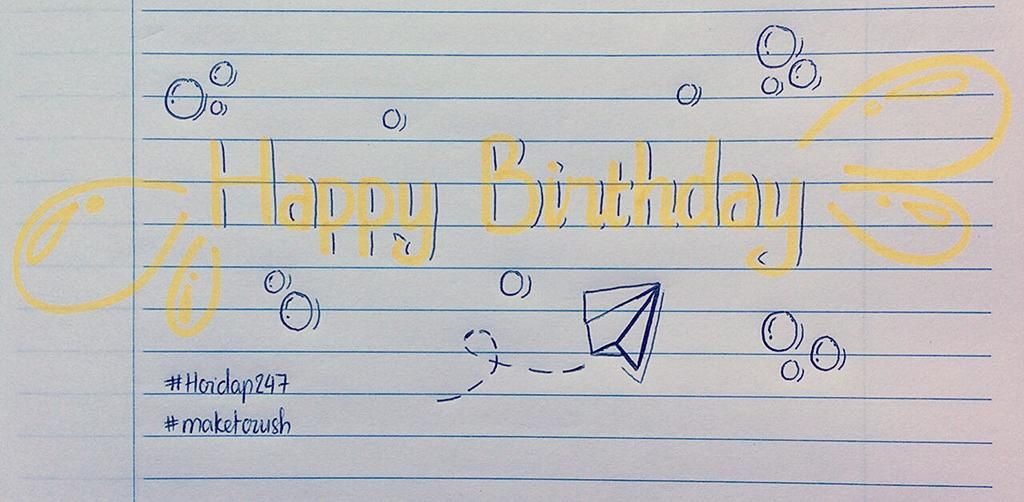 Happy Birthday
#Hoidap247
#maketorush